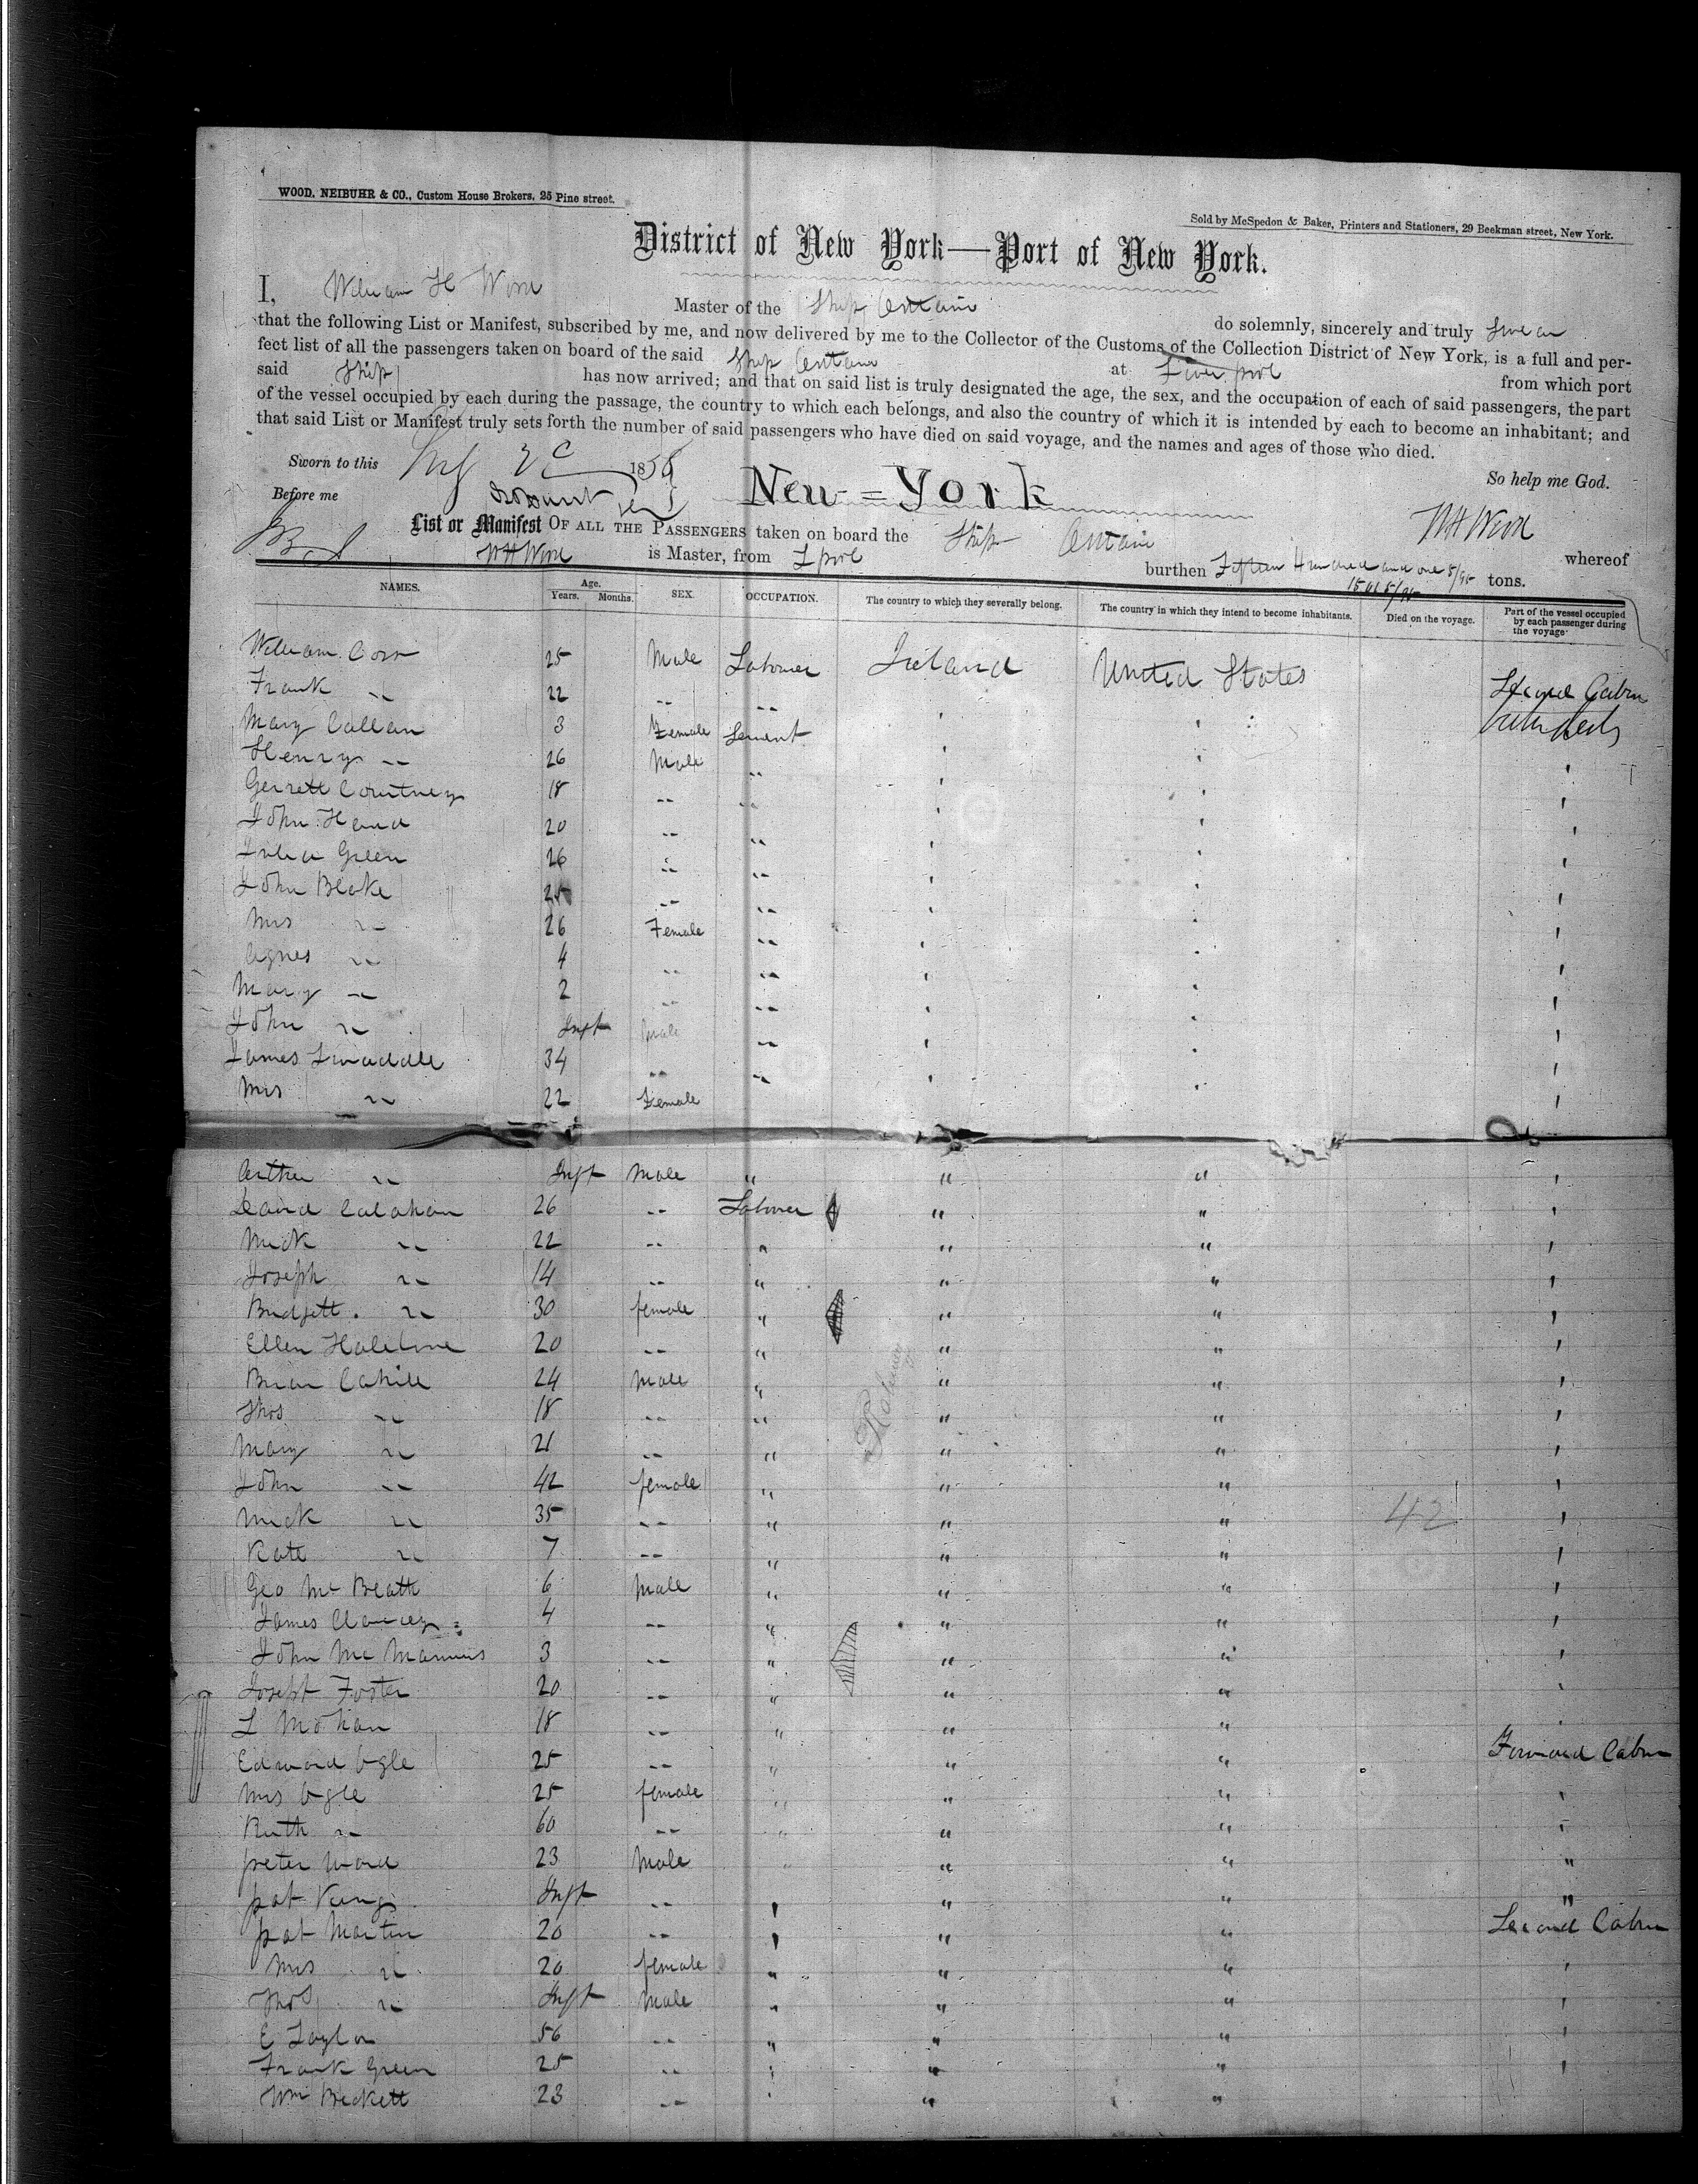 WOOD, NEIBUHR & CO., Custom House Brokers, 25 Pine street.
Sold by McSpedon & Baker, Printers and Stationers, 29 Beekman street, New York.
District of New York—Port of New York.
I, William H Wood Master of the Ship do solemnly, sincerely and truly swear
that the following List or Manifest, subscribed by me, and now delivered by me to the Collector of the Customs of the Collection District of New York, is a full and per-
fect list of all the passengers taken on board of the said Ship at Liverpool from which port
said Ship has now arrived; and that on said list is truly designated the age, the sex, and the occupation of each of said passengers, the part
of the vessel occupied by each during the passage, the country to which each belongs, and also the country of which it is intended by each to become an inhabitant; and
that said List or Manifest truly sets forth the number of said passengers who have died on said voyage, and the names and ages of those who died.
Sworn to this 185 So help me God.
Before me New=York WH Wood
List or Manifest OF ALL THE PASSENGERS taken on board the Ship whereof
WH Wood is Master, from Lpool burthen Fifteen Hundred and one 5/95 tons.
1501 5/95
NAMES. Age. Years. Months. SEX. OCCUPATION. The country to which they severally belong. The country in which they intend to become inhabitants. Died on the voyage. Part of the vessel occupied by each passenger during the voyage
William 25 Male Labourer Ireland United States Second Cabin
Frank " 22 " "
Mary Callan 3 Female Servant
Henry " 26 Male "
Gerrett Courtney 18 " "
John Hand 20 " "
Julia Green 26 " "
John Blake 25 " "
Mrs " 26 Female "
Agnes " 4 " "
Mary " 2 " "
John " Inft Male "
James 34 " "
Mrs " 22 Female
Arthur " Inft Male " " "
David Calahan 26 " Labourer " "
Mick " 22 " " " "
Joseph " 14 " " " "
Bridgett " 30 female " " "
Ellen 20 " " " "
Brian Cahill 24 Male " " "
Thos " 18 " " " "
Mary " 21 " " " "
John " 42 female " " "
Mick " 35 " " " " 42
Kate " 7 " " " "
Geo Mc Beath 6 Male " " "
James Clancey 4 " " " "
John Mc Mannus 3 " " " "
Joseph Foster 20 " " " "
L Mohan 18 " " " "
Edward Ogle 25 " " " " Forward Cabin
Mrs Ogle 25 female " " "
Ruth " 60 " " " "
peter Ward 23 Male " " " "
pat King Inft " " " "
pat Martin 20 " " " Second Cabin
Mrs " 20 female " " "
Thos " Inft Male " " "
E Taylor 56 " " " "
Frank Green 25 " " "
Wm Beckett 23 " " "